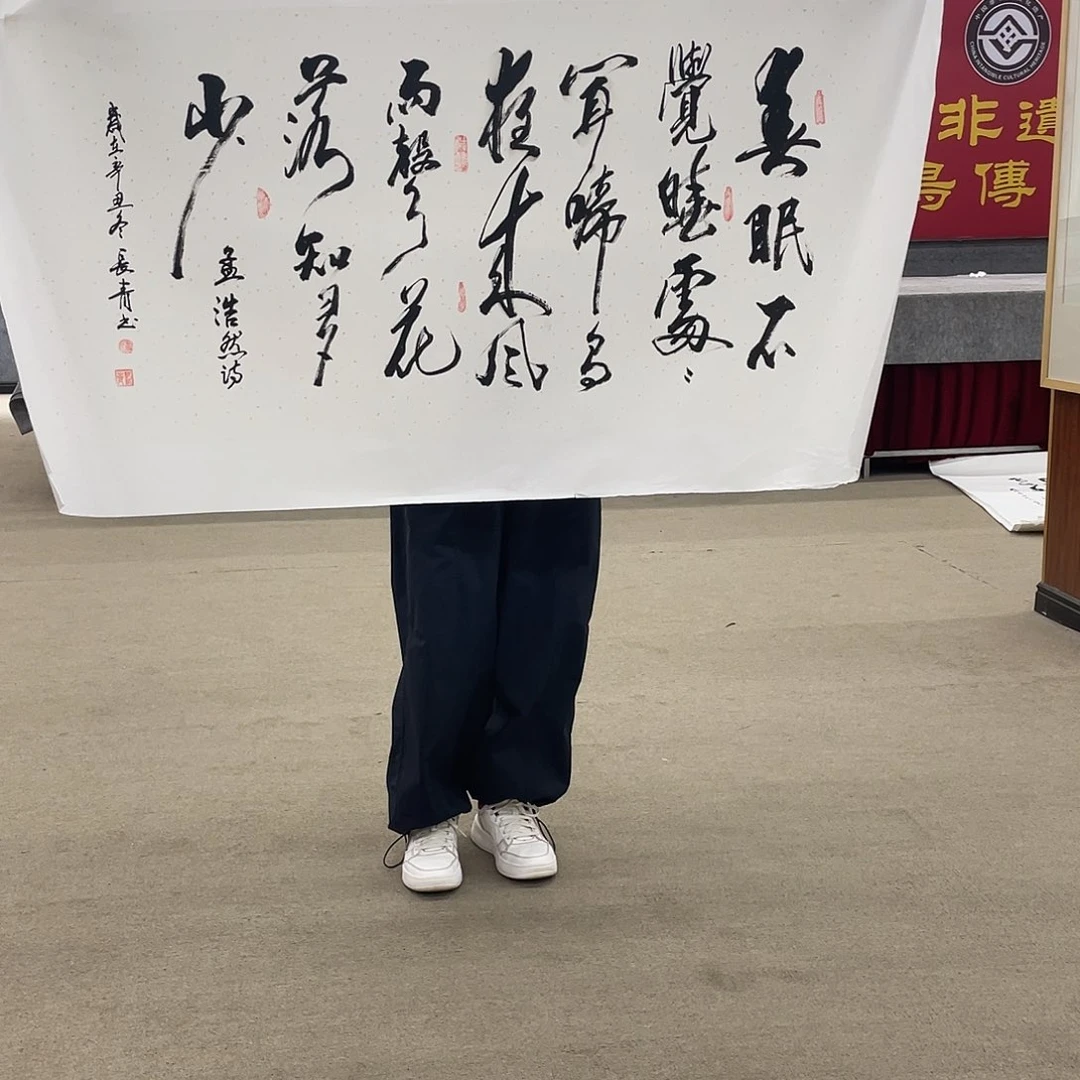 春眠不
覺曉處〻
闻啼鸟
夜来风
雨聲花
落知多
少
孟浩然诗
歲在辛丑冬 長青书
CHINA INTANGIBLE CULTURAL HERITAGE
非遺
傳